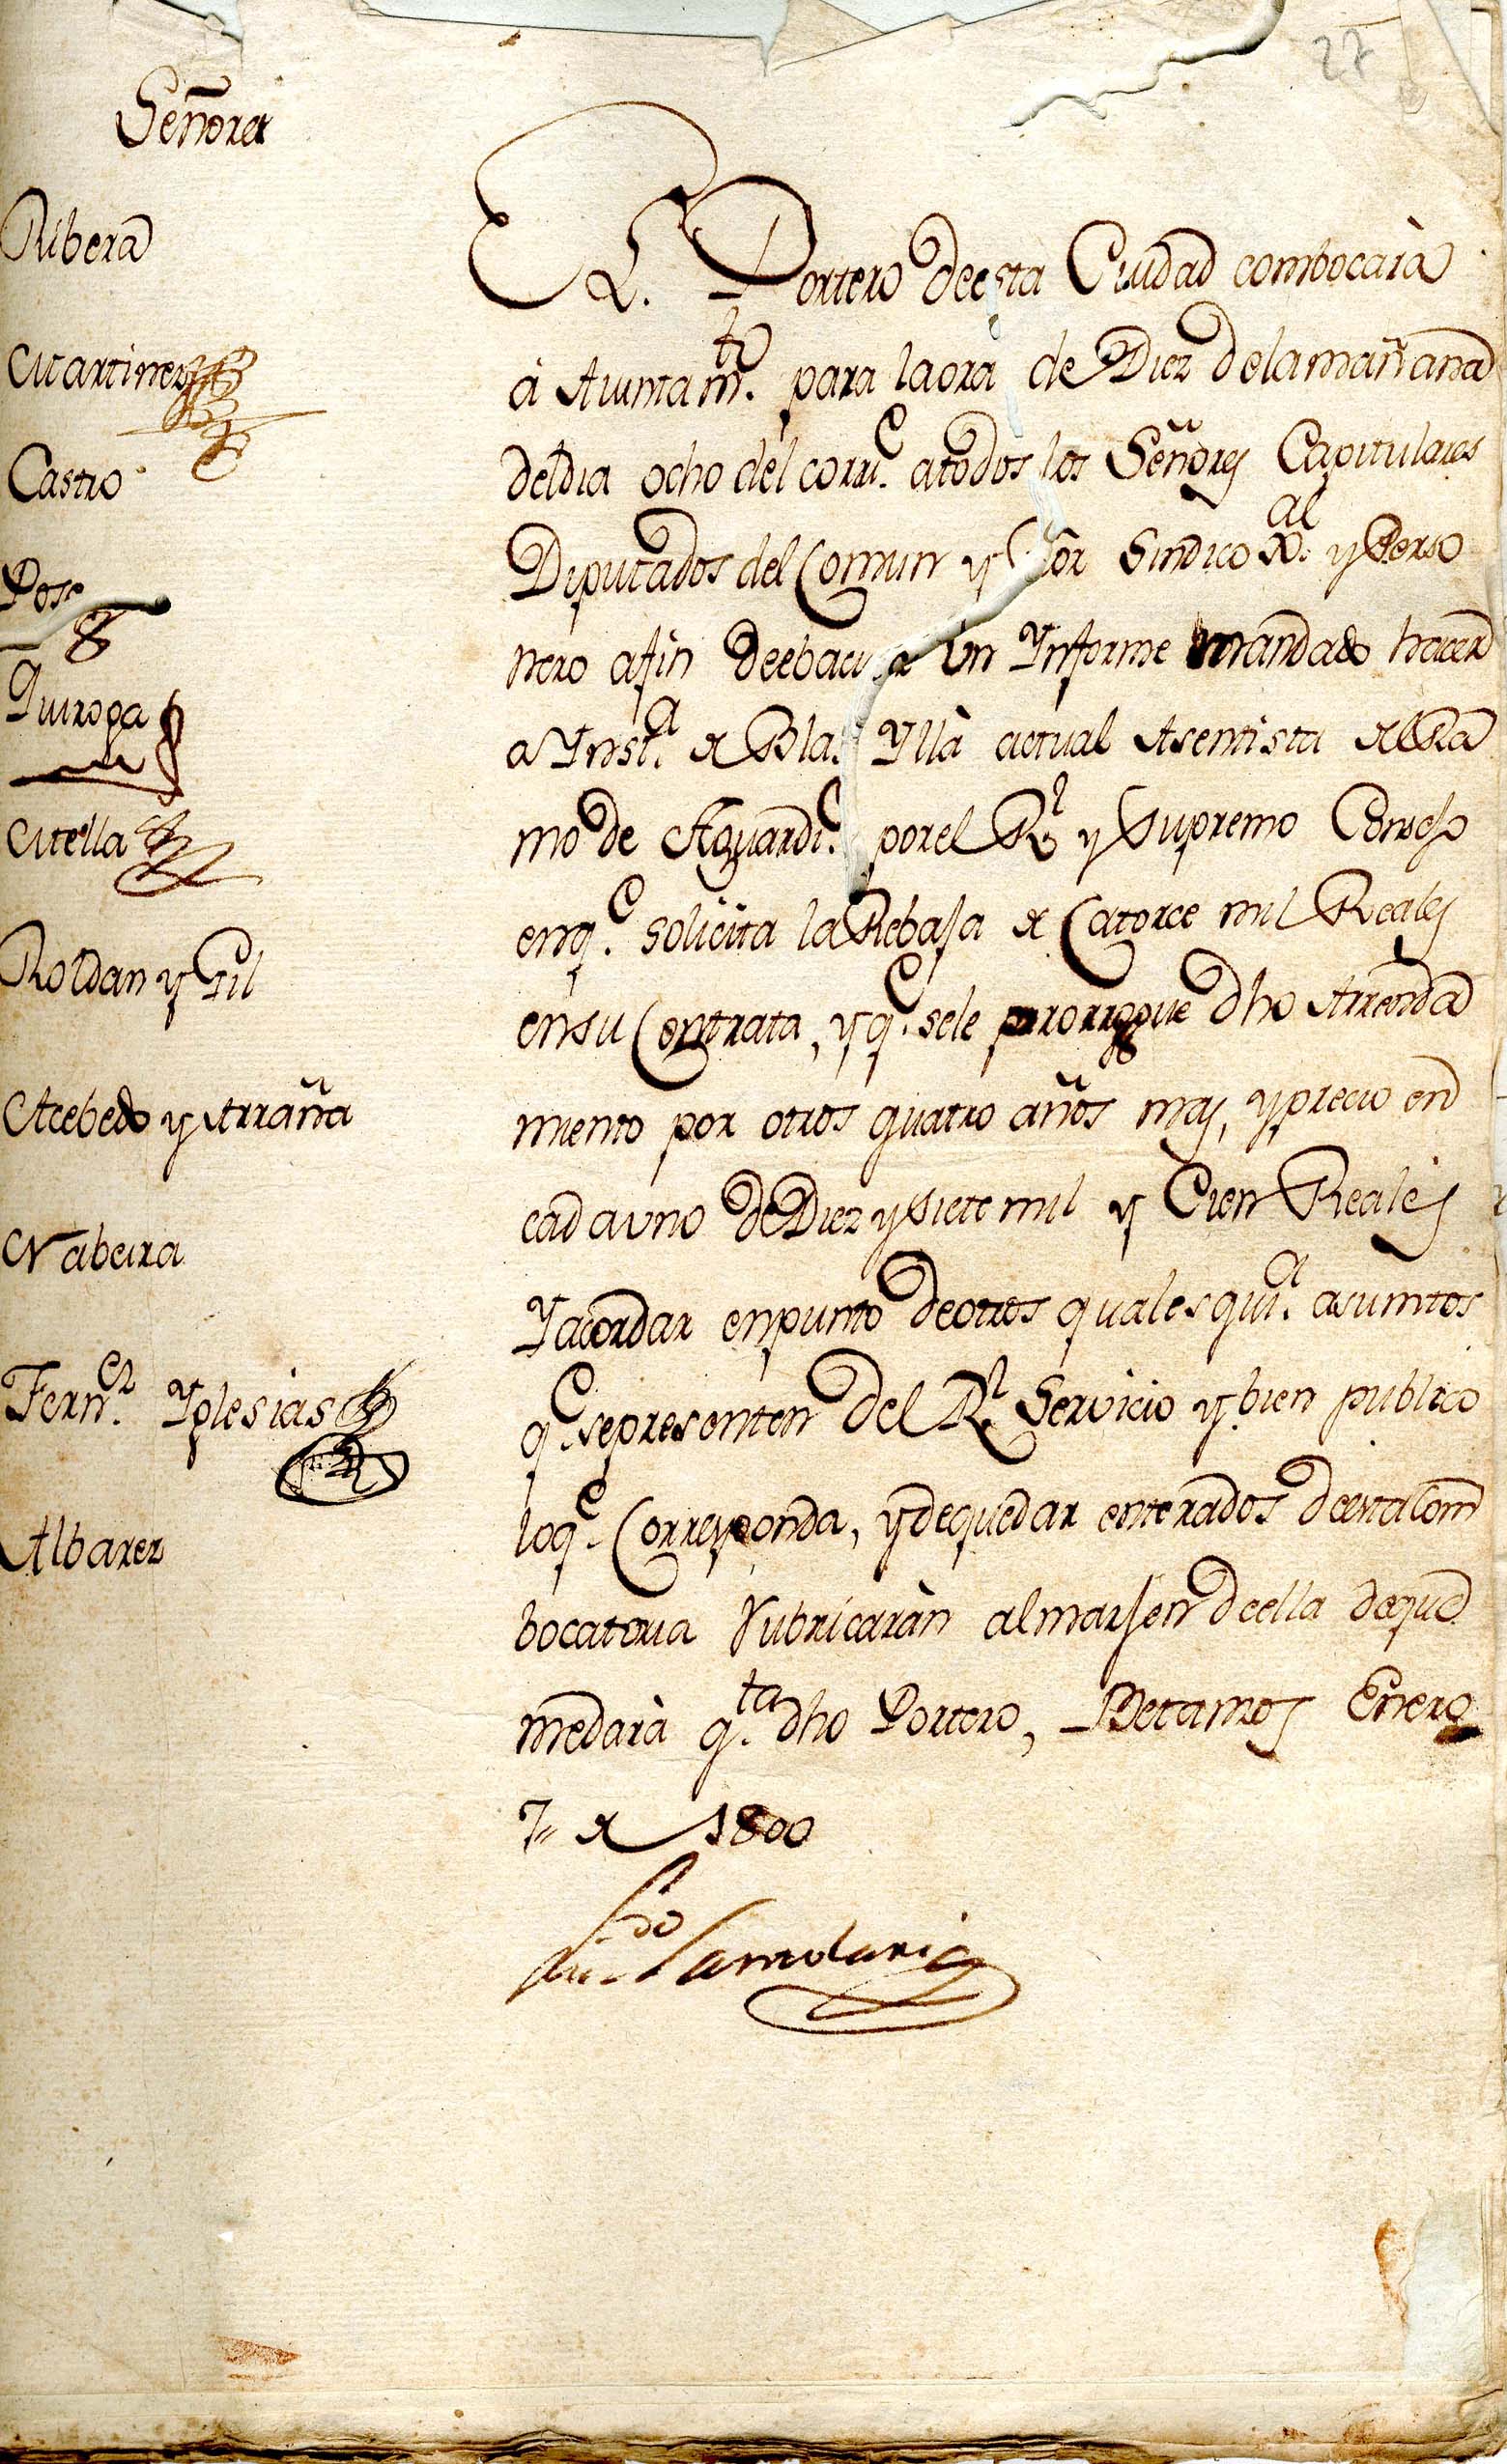 27
Señores
Ribera
Martinez
Castro
Pose
Quiroga
Mella
Roldan y Gil
Acebedo y Arraña
Nabeira
Fern.ez Yglesias
Albarez
El. Portero deesta Ciudad combocarà
à Aiuntam.to para laora de Diez delamañana
deldia ocho del corri.e atodos los Señores Capitulares
Diputados del Comun y Sindico x.al y Perso
nero afin deebacuar Un Ynforme mandado hacer
a Ynst.a de Blas Yllà actual Asentista del Ra
mo de Aguardi.e porel R.l y Supremo Consejo
enq.e solicita la Rebaja de Catorce mil Reales
ensu Contrata, yq.e sele prorrogue dho Arrenda
miento por otros quatro años mas, yprecio en
cadauno de Diez ysiete mil y Cien Reales
Yacordar enpunto deotros qualesqui.a asuntos
q.e sepresenten del R.l Servicio y bien publico
loq.e Corresponda, ydequedar enterados deestaCom
bocatoria rubricaràn almarjen deella deque
medarà q.ta dho Portero, Betanzos Enero
7,, de 1800